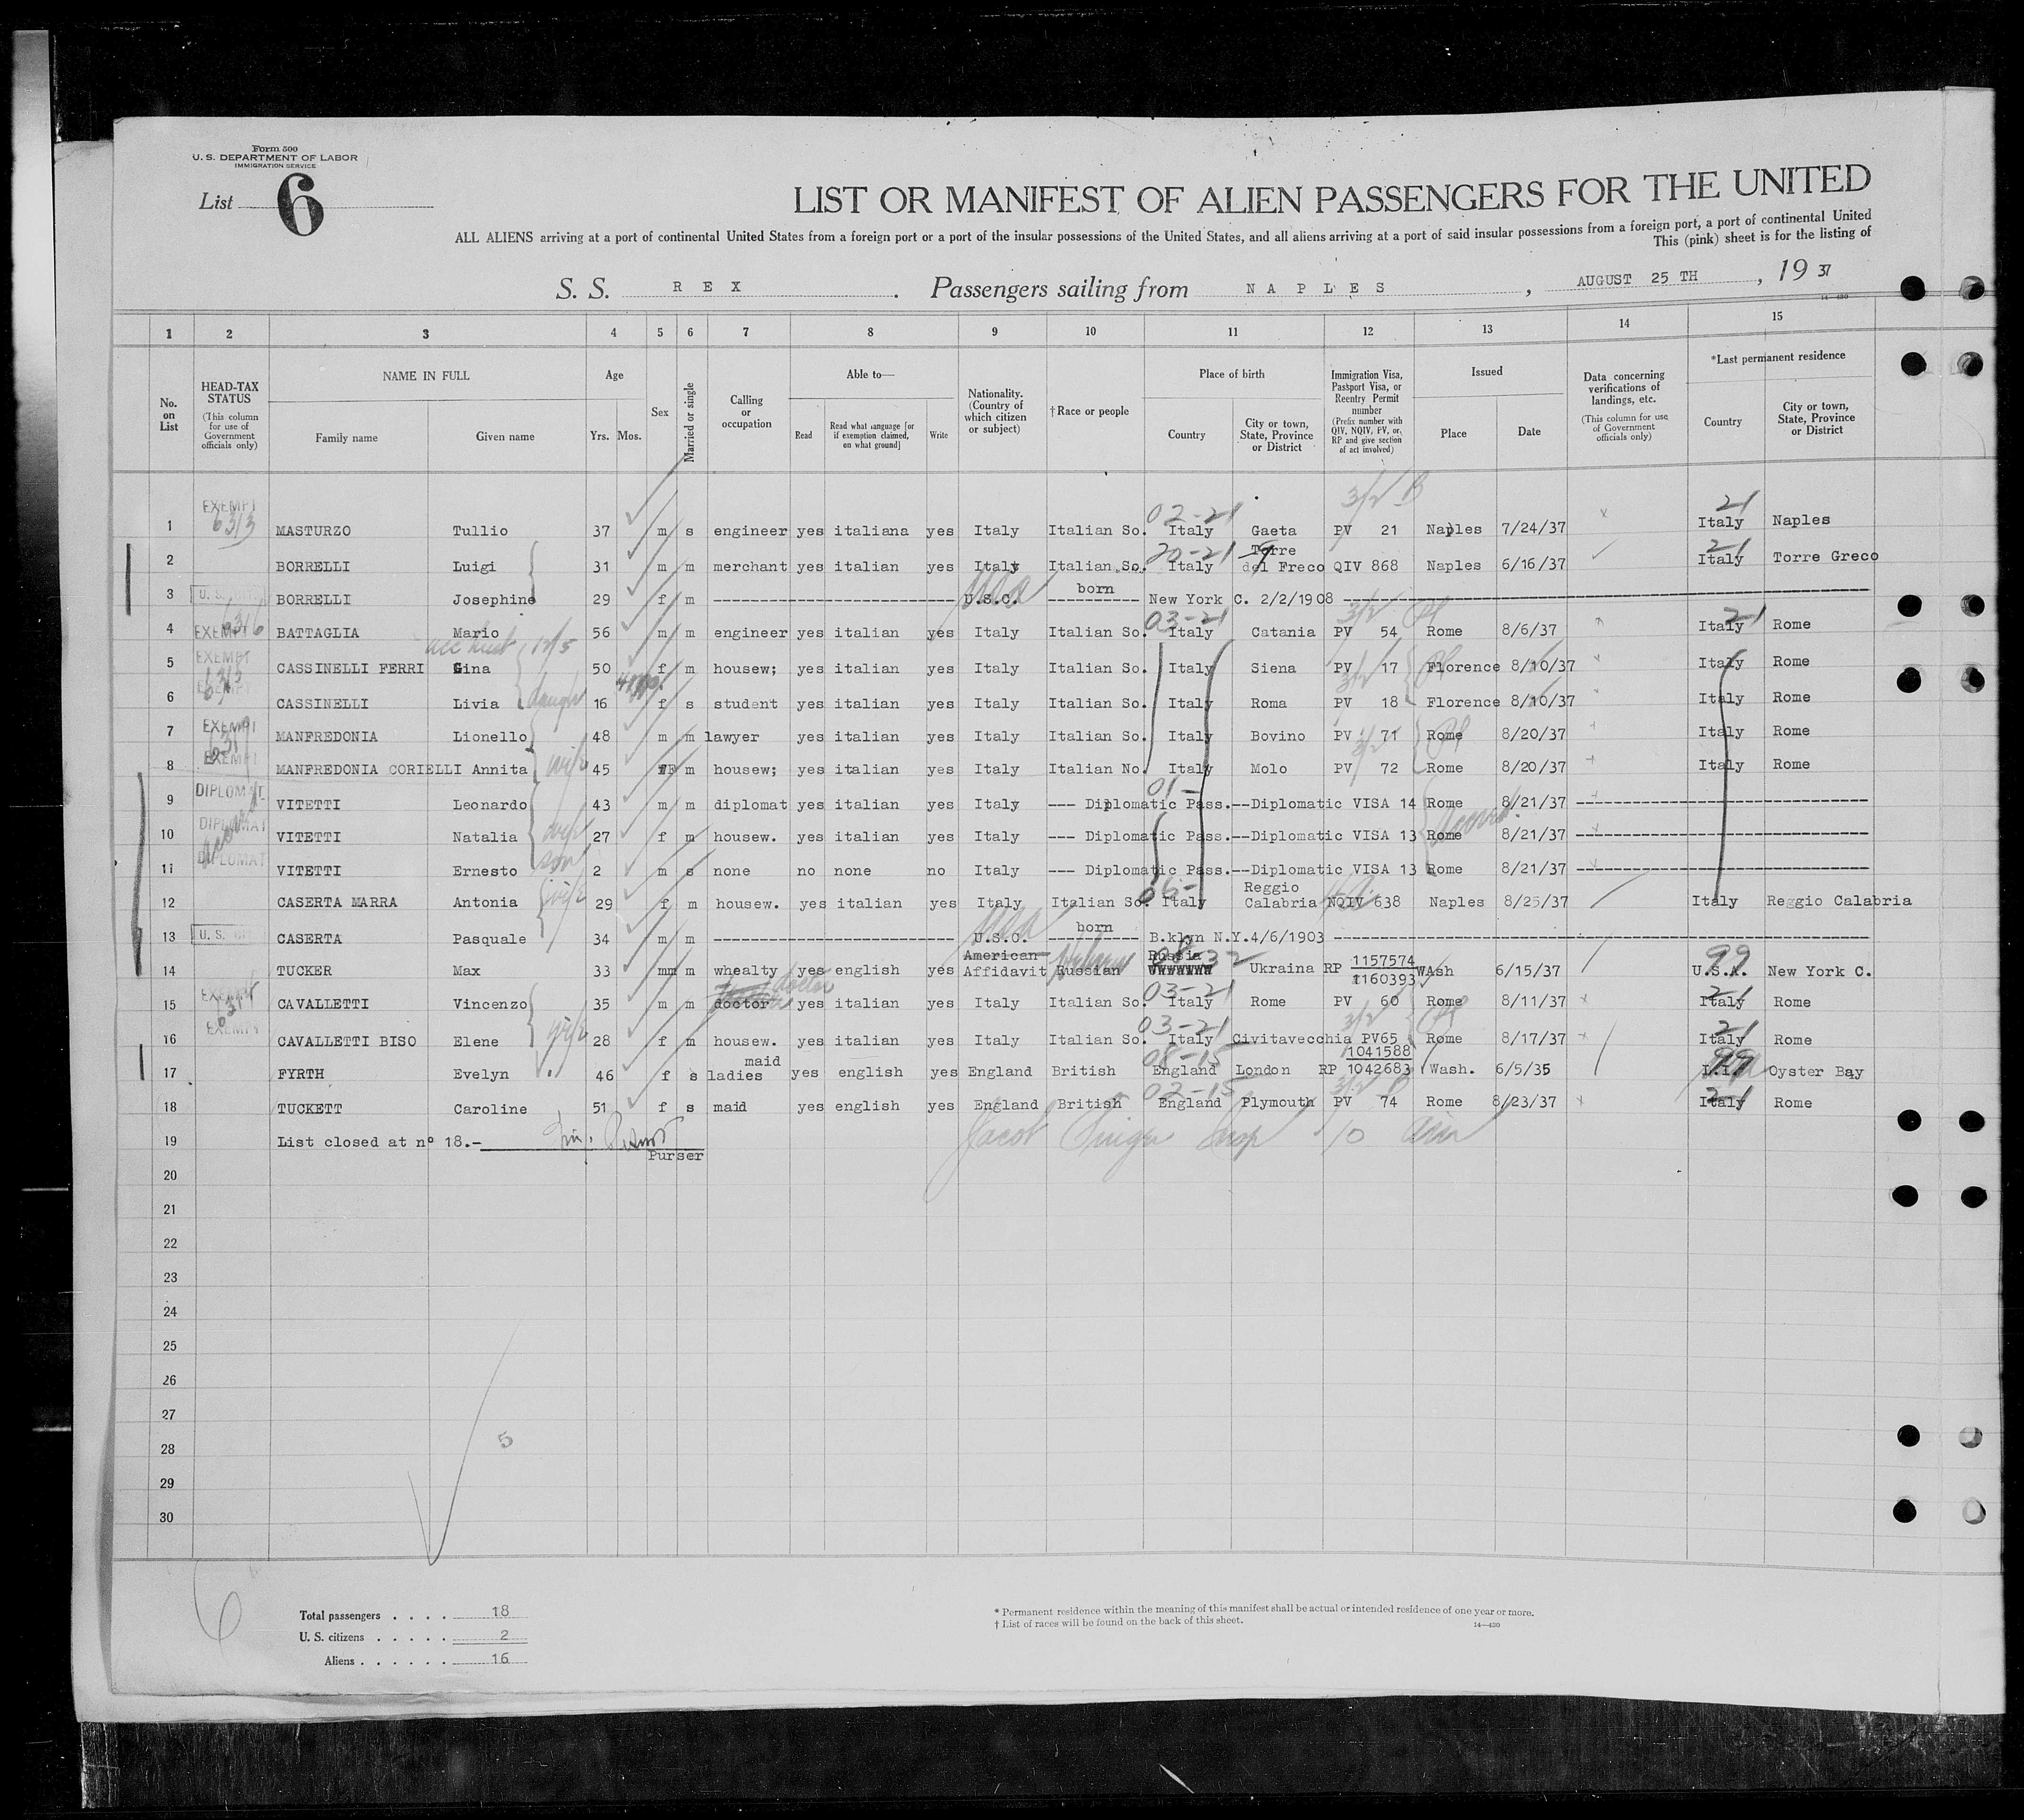 Form 500
U. S. DEPARTMENT OF LABOR
IMMIGRATION SERVICE
List 6
LIST OR MANIFEST OF ALIEN PASSENGERS FOR THE UNITED
ALL ALIENS arriving at a port of continental United States from a foreign port or a port of the insular possessions of the United States, and all aliens arriving at a port of said insular possessions from a foreign port, a port of continental United
This (pink) sheet is for the listing of
S. S. REX . Passengers sailing from NAPLES , AUGUST 25 TH , 19 37
14—430
1 2 3 4 5 6 7 8 9 10 11 12 13 14 15
No. on List
HEAD-TAX STATUS
(This column for use of Government officials only)
NAME IN FULL
Family name Given name
Age
Yrs. Mos.
Sex
Married or single
Calling or occupation
Able to—
Read
Read what language [or if exemption claimed, on what ground]
Write
Nationality. (Country of which citizen or subject)
† Race or people
Place of birth
Country
City or town, State, Province or District
Immigration Visa, Passport Visa, or Reentry Permit number
(Prefix number with QIV, NQIV, PV, or, RP and give section of act involved)
Issued
Place Date
Data concerning verifications of landings, etc.
(This column for use of Government officials only)
*Last permanent residence
Country
City or town, State, Province or District
3/2 B
EXEMPT 02-21 21
1 6313 MASTURZO Tullio 37 m s engineer yes italiana yes Italy Italian So. Italy Gaeta PV 21 Naples 7/24/37 Italy Naples
20-21 Torre 21
2 BORRELLI Luigi 31 m m merchant yes italian yes Italy Italian So. Italy del Freco QIV 868 Naples 6/16/37 Italy Torre Greco
born
3 U. S. BORRELLI Josephine 29 f m U.S.C. New York C. 2/2/1908
6316 03-21 3/2 21
4 EXEMPT BATTAGLIA Mario 56 m m engineer yes italian yes Italy Italian So. Italy Catania PV 54 Rome 8/6/37 Italy Rome
5 EXEMPT CASSINELLI FERRI Gina 50 f m housew; yes italian yes Italy Italian So. Italy Siena PV 17 Florence 8/10/37 Italy Rome
3/2
6 EXEMPT CASSINELLI Livia daught 16 f s student yes italian yes Italy Italian So. Italy Roma PV 18 Florence 8/10/37 Italy Rome
7 EXEMPT MANFREDONIA Lionello 48 m m lawyer yes italian yes Italy Italian So. Italy Bovino PV 71 Rome 8/20/37 Italy Rome
3/2
8 EXEMPT MANFREDONIA CORIELLI Annita wife 45 F m housew; yes italian yes Italy Italian No. Italy Molo PV 72 Rome 8/20/37 Italy Rome
01-
9 DIPLOMAT VITETTI Leonardo 43 m m diplomat yes italian yes Italy --- Diplomatic Pass.--Diplomatic VISA 14 Rome 8/21/37
10 DIPLOMAT VITETTI Natalia wife 27 f m housew. yes italian yes Italy --- Diplomatic Pass.--Diplomatic VISA 13 Rome 8/21/37
11 DIPLOMAT VITETTI Ernesto son 2 m s none no none no Italy --- Diplomatic Pass.--Diplomatic VISA 13 Rome 8/21/37
06- Reggio
12 CASERTA MARRA Antonia wife 29 f m housew. yes italian yes Italy Italian So. Italy Calabria NQIV 638 Naples 8/25/37 Italy Reggio Calabria
born
13 U. S. CASERTA Pasquale 34 m m U.S.C. B.klyn N.Y.4/6/1903
American Russia 1157574 99
14 TUCKER Max 33 m m whealty yes english yes Affidavit Russian Hebrew Ukraina RP 1160393 WAsh 6/15/37 U.S.A. New York C.
doctor 03-21 21
15 EXEMPT CAVALLETTI Vincenzo 35 m m doctor yes italian yes Italy Italian So. Italy Rome PV 60 Rome 8/11/37 Italy Rome
03-21 3/2 21
16 EXEMPT CAVALLETTI BISO Elene wife 28 f m housew. yes italian yes Italy Italian So. Italy Civitavecchia PV65 Rome 8/17/37 Italy Rome
maid 08-15 1041588 99
17 FYRTH Evelyn 46 f s ladies yes english yes England British England London RP 1042683 Wash. 6/5/35 Oyster Bay
02-15 3/2 B 21
18 TUCKETT Caroline 51 f s maid yes english yes England British England Plymouth PV 74 Rome 8/23/37 Italy Rome
19 List closed at n° 18.- Jacob 10
Purser
20
21
22
23
24
25
26
27
28
5
29
30
6
Total passengers . . . . 18
U. S. citizens . . . . . 2
Aliens . . . . . . 16
* Permanent residence within the meaning of this manifest shall be actual or intended residence of one year or more.
† List of races will be found on the back of this sheet.
14—430